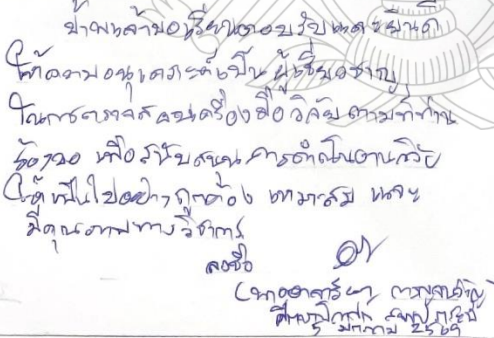 ข้าพเจ้าขอเรียนตอบรับและยินดี
ให้ความอนุเคราะห์เป็นผู้เชี่ยวชาญ
ในการตรวจสอบเครื่องมือวิจัยตามที่ท่าน
ร้องขอ เพื่อสนับสนุนการดำเนินงานวิจัย
ให้เป็นไปอย่างถูกต้อง เหมาะสม และ
มีคุณภาพทางวิชาการ
ลงชื่อ
มกราคม 2569